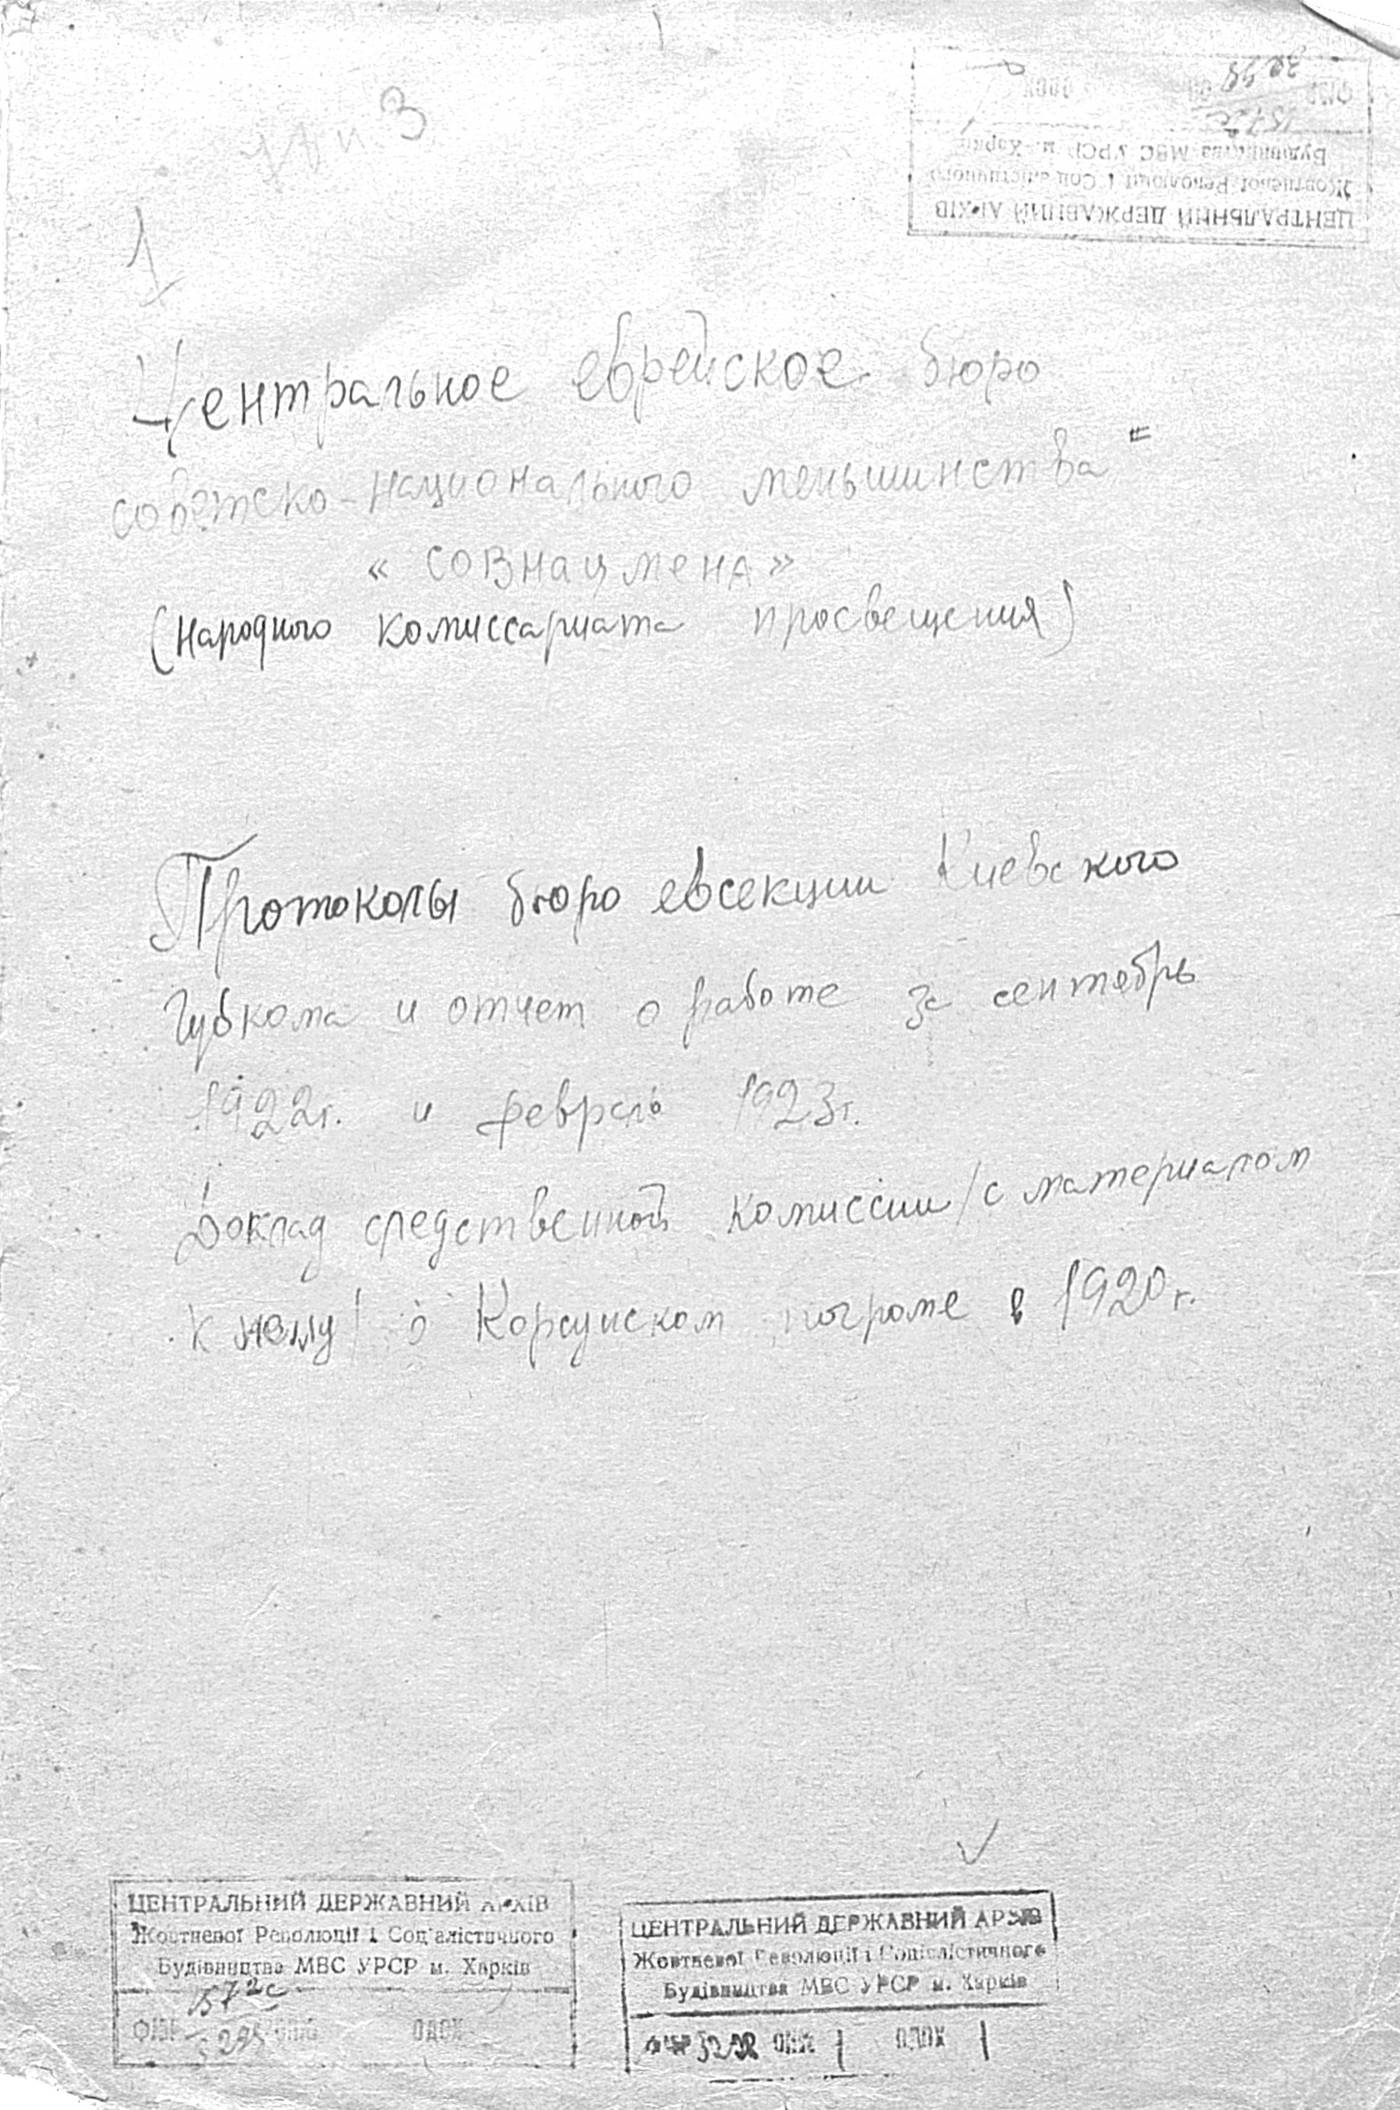 3
1
ЦЕНТРАЛЬНИЙ ДЕРЖАВНИЙ АРХІВ
Жовтневої Революції і Соціалістичного
Будівництва МВС УРСР м. Харків
Центральное еврейское бюро
советско-национального меньшинства =
« СОВНАЦМЕНА »
(Народного комиссариата просвещения)
Протоколы бюро евсекции Киевского
Губкома и отчет о работе за сентябрь
1922г. и февраль 1923г.
Доклад следственной комиссии /с материалом
к нему/ о Корсунском погроме в 1920 г.
ЦЕНТРАЛЬНИЙ ДЕРЖАВНИЙ АРХІВ
Жовтневої Революції і Соціалістичного
Будівництва МВС УРСР м. Харків
1572с
ОДОХ
ЦЕНТРАЛЬНИЙ ДЕРЖАВНИЙ АРХІВ
Жовтневої Революції і Соціалістичного
Будівництва МВС УРСР м. Харків
1 1